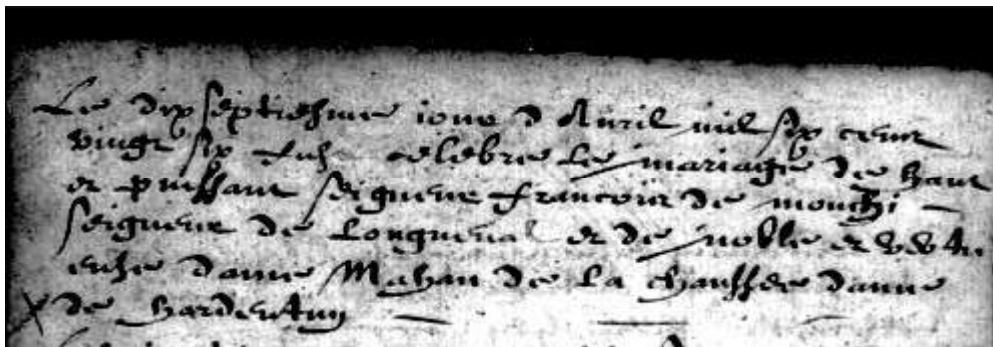 Le dix septiesme iour d Avril mil six cent
vingt six fust celebre le mariage de haut
et puissant seigneur francois de mouchi
seigneur de Longueval et de noble et vertu
euse dame Mahau de La chaussee dame
x de hardentun